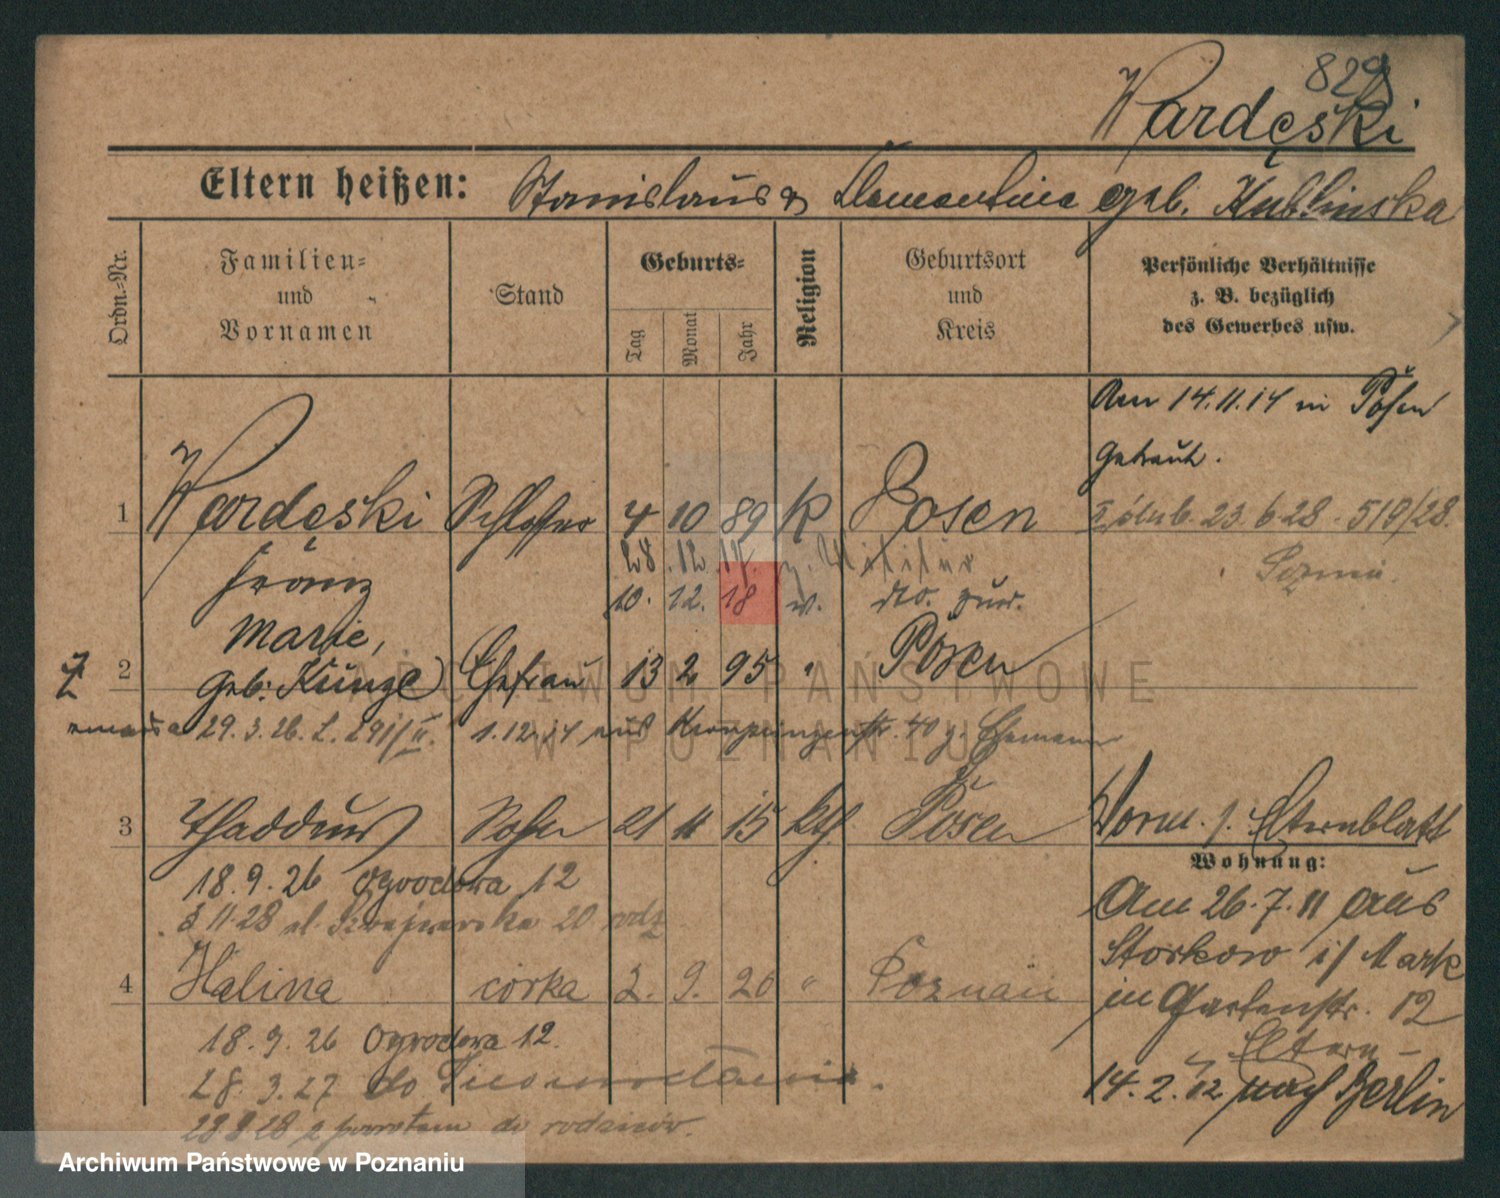 829
Wardęski
Eltern heißen: Stanislaus & Clementine geb. Kublinska
Ordn.-Nr.
Familien-
und
Vornamen
Stand
Geburts-
Tag
Monat
Jahr
Religion
Geburtsort
und
Kreis
Persönliche Verhältnisse
z. B. bezüglich
des Gewerbes usw.
Am 14.11.14 in Posen
getraut.
1 Wardęski Schlosser 4 10 89 K Posen
23.6.28. 519/28.
Franz
28.12.17. z. Militär
10. 12. 18 v. dto. zur.
Marie,
2 geb: Kunze Ehefrau 13 2 95 " Posen
29.3.26. L. 1.12.14 aus Kronprinzenstr. 40 z. Ehemann
3 Thaddäus Sohn 21 11 15 kth. Posen
Vorm. s. Elternblatt
Wohnung:
18.9.26 Ogrodowa 12
11.28 ul. Szwajcarska 20 rodz
Am 26.7.11 aus
Storkow i/Mark
in Gartenstr. 12
Eltern
14.2.12 nach Berlin
4 Halina córka 2. 9. 26 " Poznań
18.9.26 Ogrodowa 12.
28.3.27 do
28.8.28 z powrotem do rodziców.
ARCHIWUM PAŃSTWOWE
W POZNANIU
Archiwum Państwowe w Poznaniu